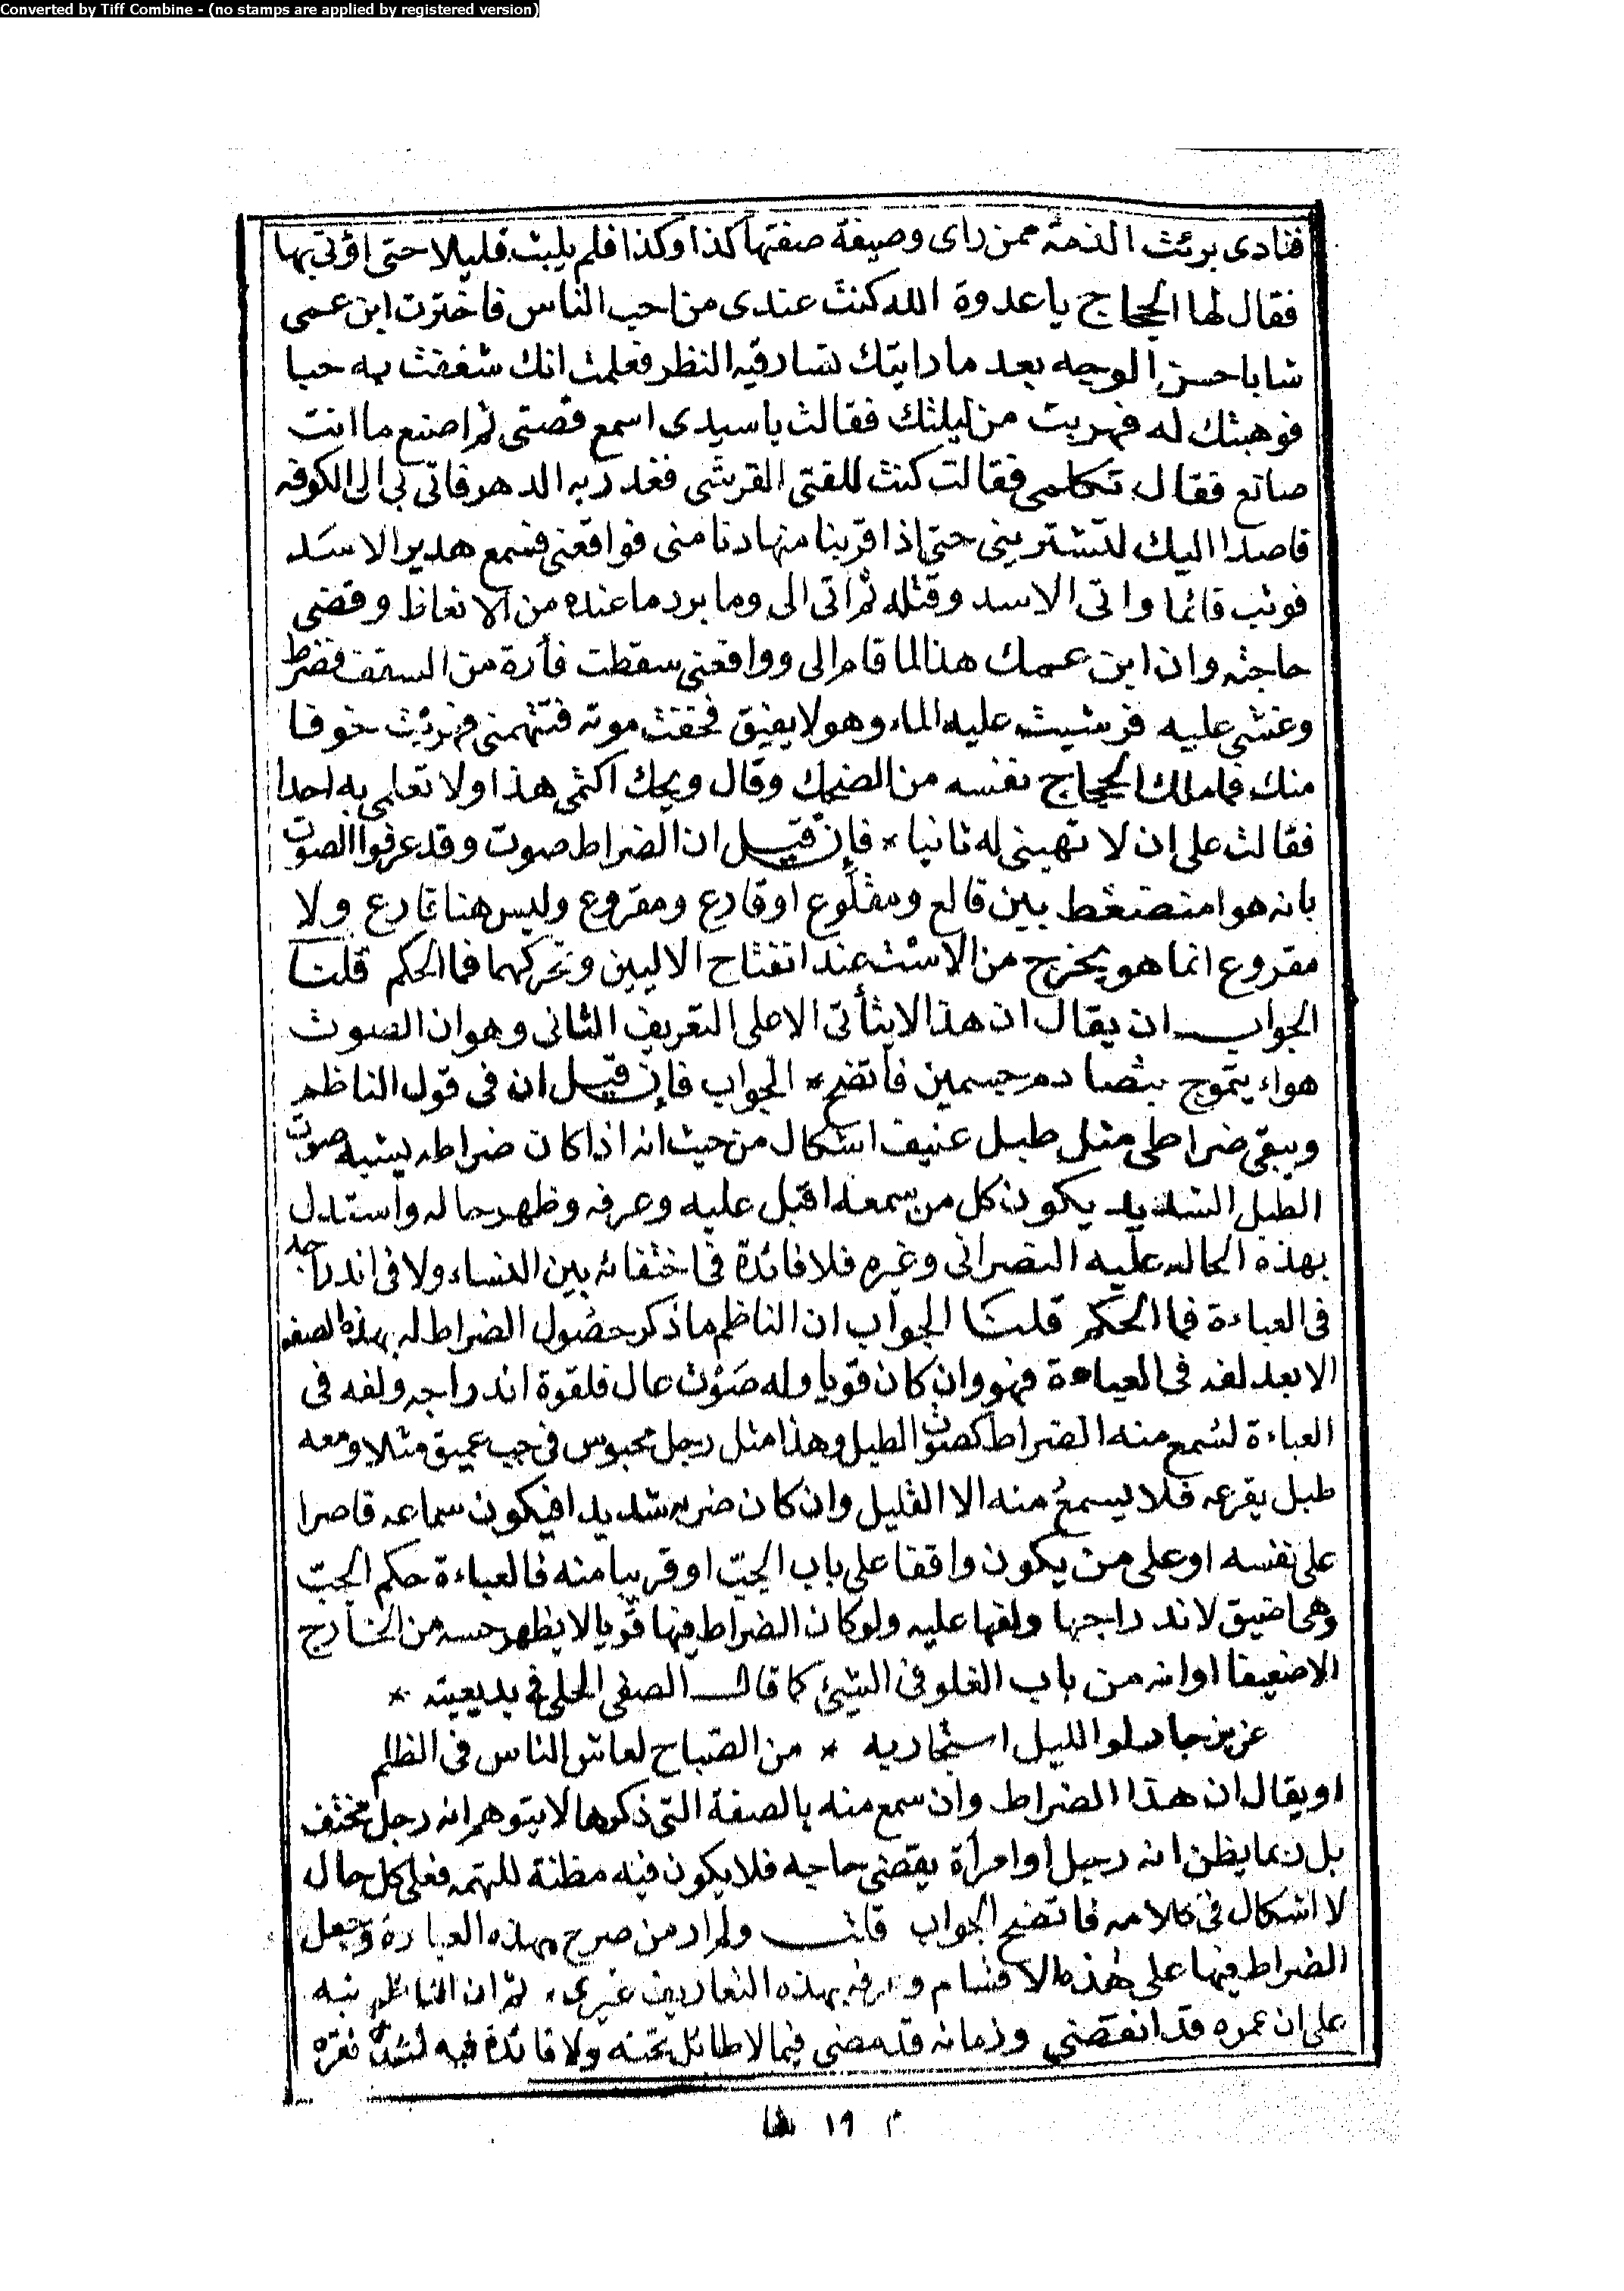 Converted by Tiff Combine - (no stamps are applied by registered version)
فنادى برئت الذمة ممن راى وصيفة صفتها كذا وكذا فلم يلبث قليلا حتى اوتى بها
فقال لها الحجاج يا عدوة الله كنت عندى من احب الناس فاخترت ابن عمى
شابا حسن الوجه بعد ما رايتك تسارقيه النظر فعلمت انك شغفت به حبا
فوهبتك له فهربت من ليلتك فقالت يا سيدى اسمع قصتى ثم اصنع ما انت
صانع فقال تكلمى فقالت كنت للفتى القرشى فغدر به الدهر فاتى بى الى الكوفه
قاصدا اليك لتشترينى حتى اذا قربنا منها دنا منى فواقعنى فسمع هدير الاسد
فوثب قائما واتى الاسد وقتله ثم اتى الى وما برد ما عنده من الانعاظ وقضى
حاجته وان ابن عمك هذا لما قام الى وواقعنى سقطت فأرة من السقف فضرط
وغشى عليه فرشيت عليه الماء وهو لا يفيق فخفت موته فتتهمنى فهربت خوفا
منك فما ملك الحجاج نفسه من الضحك وقال ويحك اكتمى هذا ولا تعلمى به احدا
فقالت على ان لا تهبنى له ثانيا * فإن قيل ان الضراط صوت وقد عرفوا الصوت
بانه هوا منضغط بين قالع ومقلوع او قارع ومقروع وليس هنا قارع ولا
مقروع انما هو يخرج من الاست عند انفتاح الاليين وتحركهما فما الحكم قلنا
الجواب ان يقال ان هذا لا يتأتى الا على التعريف الثانى وهو ان الصوت
هواء يتموج بتصادم جسمين فاتضح * الجواب فإن قيل ان فى قول الناظم
ويبقى ضراطى مثل طبل عنيف اشكال من حيث انه اذا كان ضراطه يشبه صوت
الطبل الشديد يكون كل من سمعه اقبل عليه وعرفه وظهر حاله واستدل
بهذه الحاله عليه النصرانى وغيره فلا فائدة فى اختفائه بين النساء ولا فى اندراجه
فى العباءة فما الحكم قلنا الجواب ان الناظم ما ذكر حصول الضراط له بهذه الصفه
الا بعد لفه فى العباءة فهو وان كان قويا وله صوت عال فلقوة اندراجه ولفه فى
العباءة لسمع منه الضراط كصوت الطبل وهذا مثل رجل محبوس فى جب عميق مثلا ومعه
طبل يقرعه فلا يسمع منه الا القليل وان كان ضربه شديدا فيكون سماعه قاصرا
على نفسه او على من يكون واقفا على باب الجب او قريبا منه فالعباءة حكم الجب
وهى اضيق لاندراجها ولفها عليه ولو كان الضراط فيها قويا لا يظهر حسه من الخارج
الا ضعيفا او انه من باب الغلو فى الشئ كما قال الصفى الحلى فى بديعيته *
عزيز جار لو الليل استجار به * من الصباح لعاش الناس فى الظلم
او يقال ان هذا الضراط وان سمع منه بالصفة التى ذكرها لا يتوهم انه رجل مختف
بل ربما يظن انه رجل او امرأة يقضى حاجه فلا يكون فيه مظنة للتهمه فعلى كل حال
لا اشكال فى كلامه فاتضح الجواب قلت ولم ار من صرح بهذه العبارة وجعل
الضراط فيها على هذه الاقسام وعرفه بهذه التعاريف غيرى، ثم ان الناظم نبه
على ان عمره قد انقضى وزمانه قد مضى فيما لا طائل تحته ولا فائدة فيه لشدة فقره
م ١٩ شا